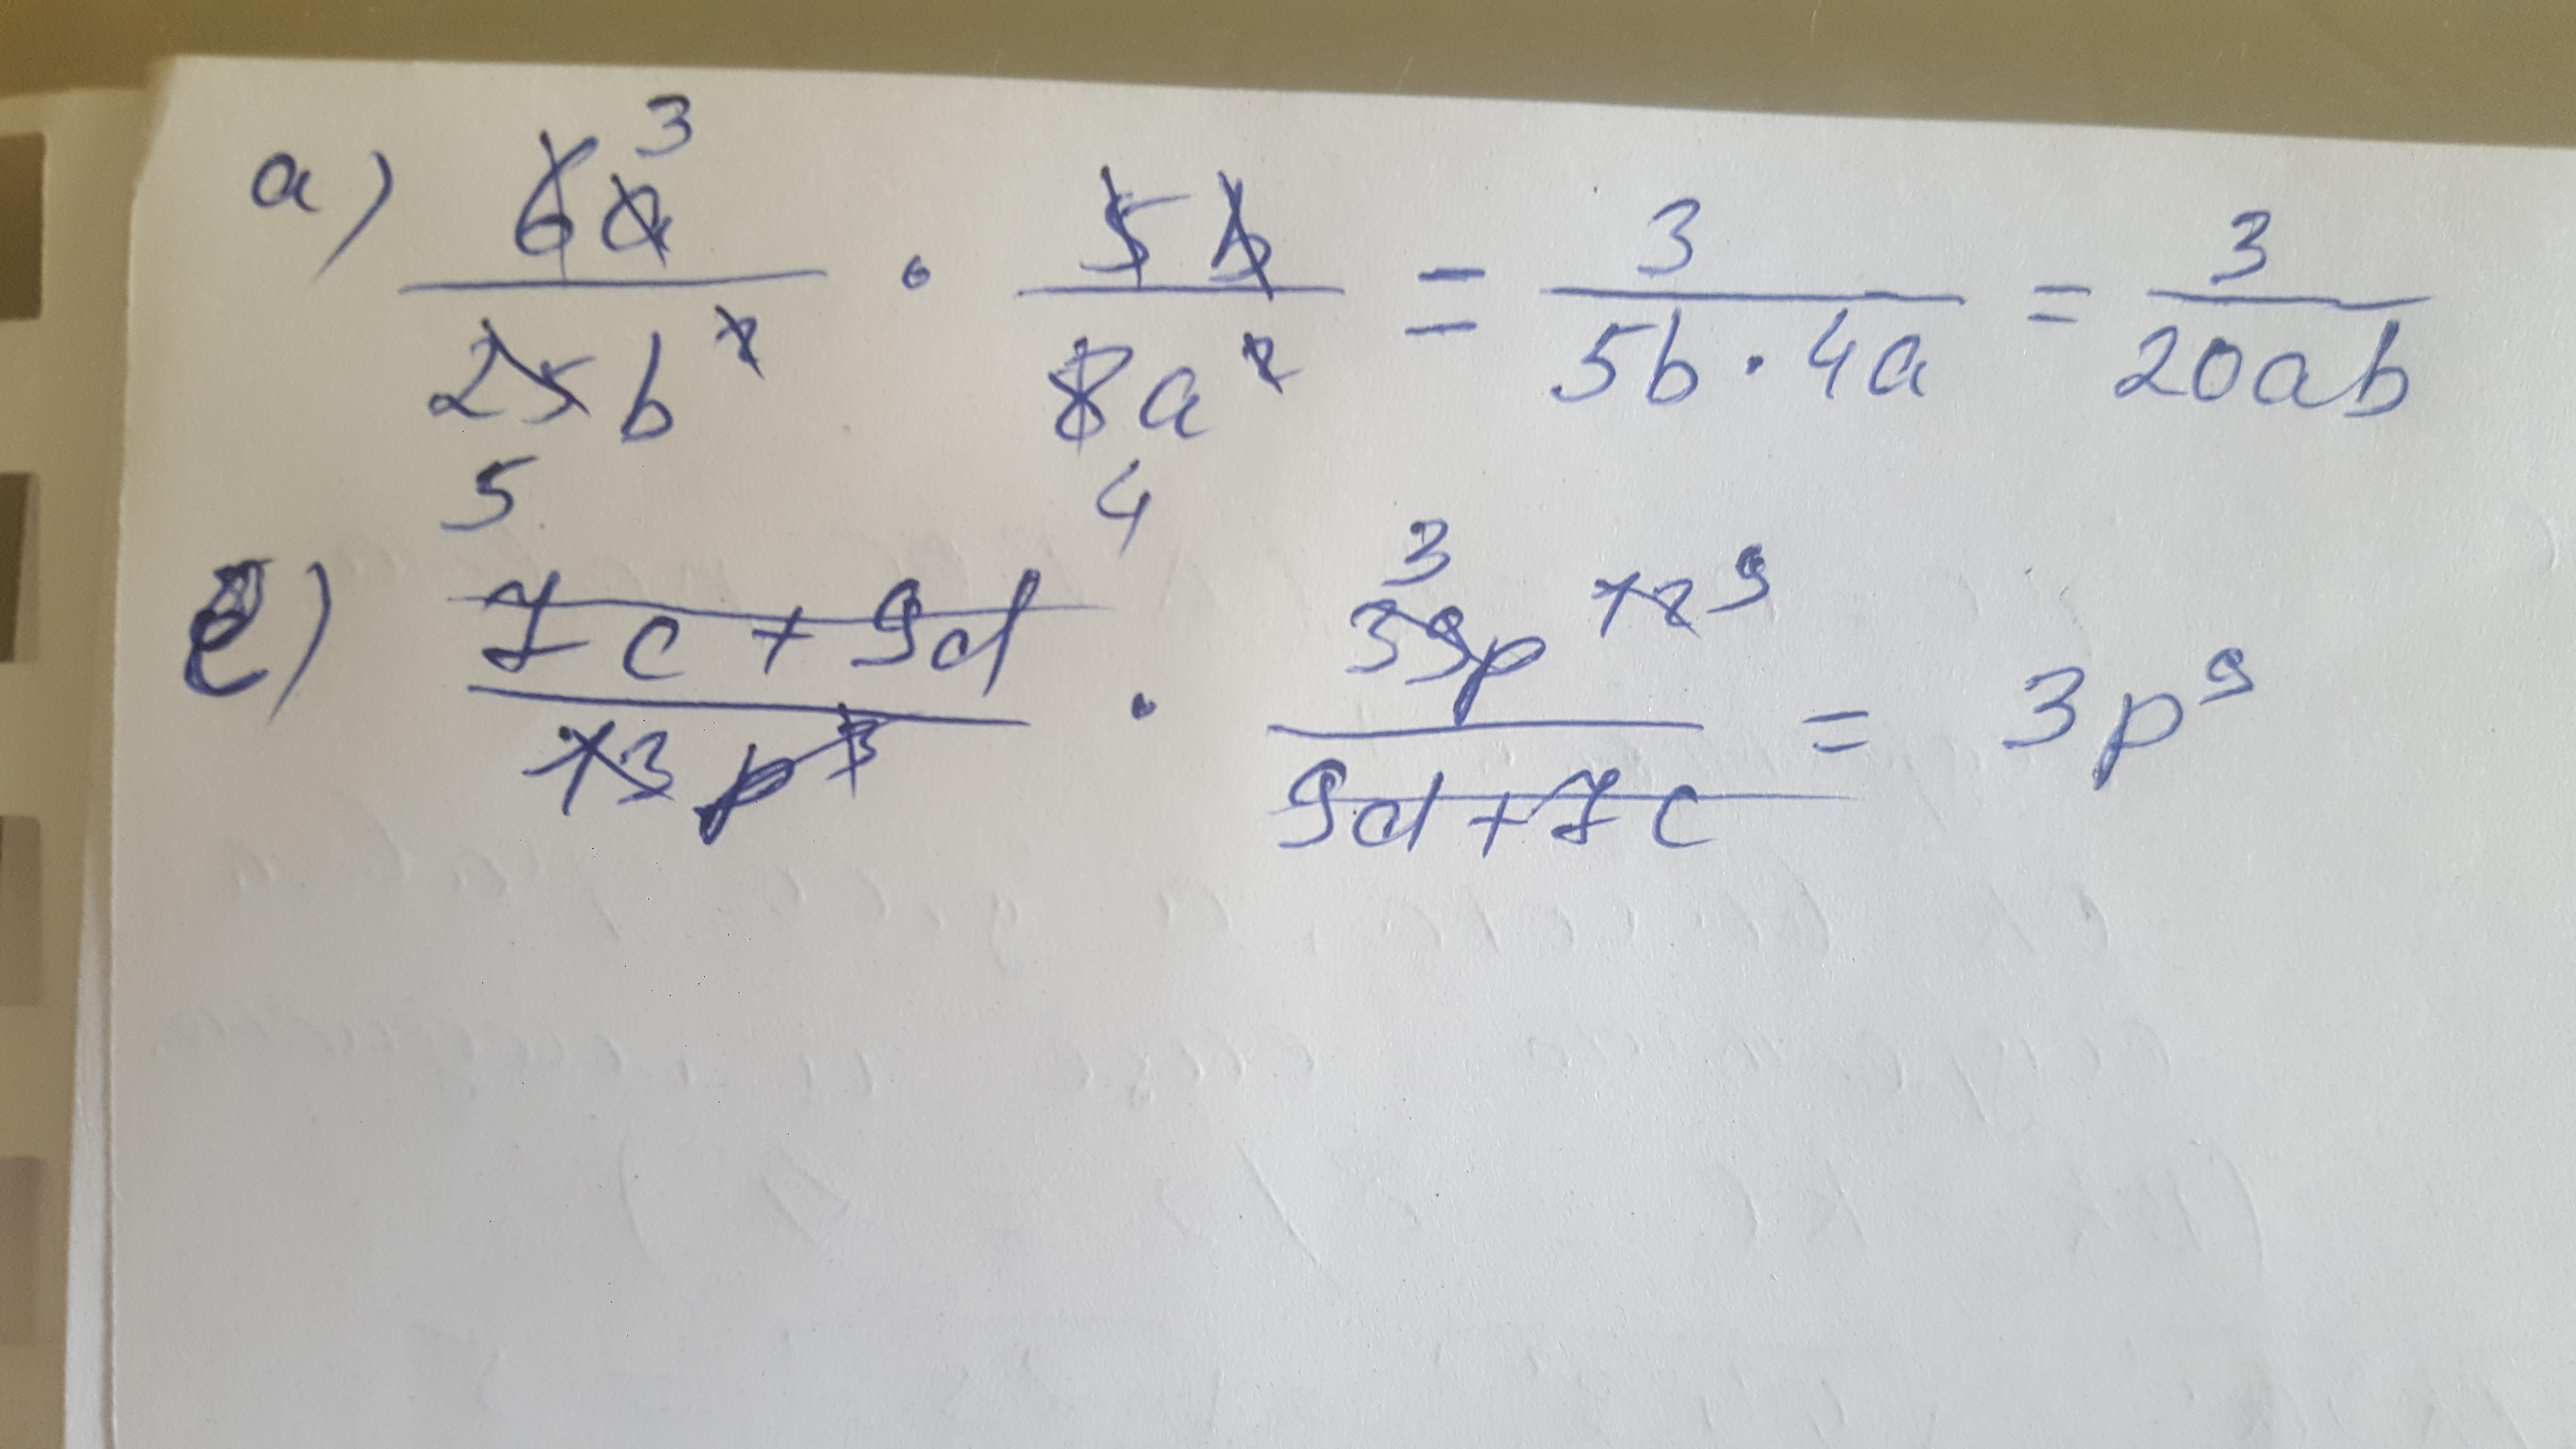 a) 6a/25b² · 5b/8a² = 3/(5b · 4a) = 3/20ab
3
5 4
e) (7c + 9d)/13p³ · 39p¹²/(9d + 7c) = 3p⁹
3 9